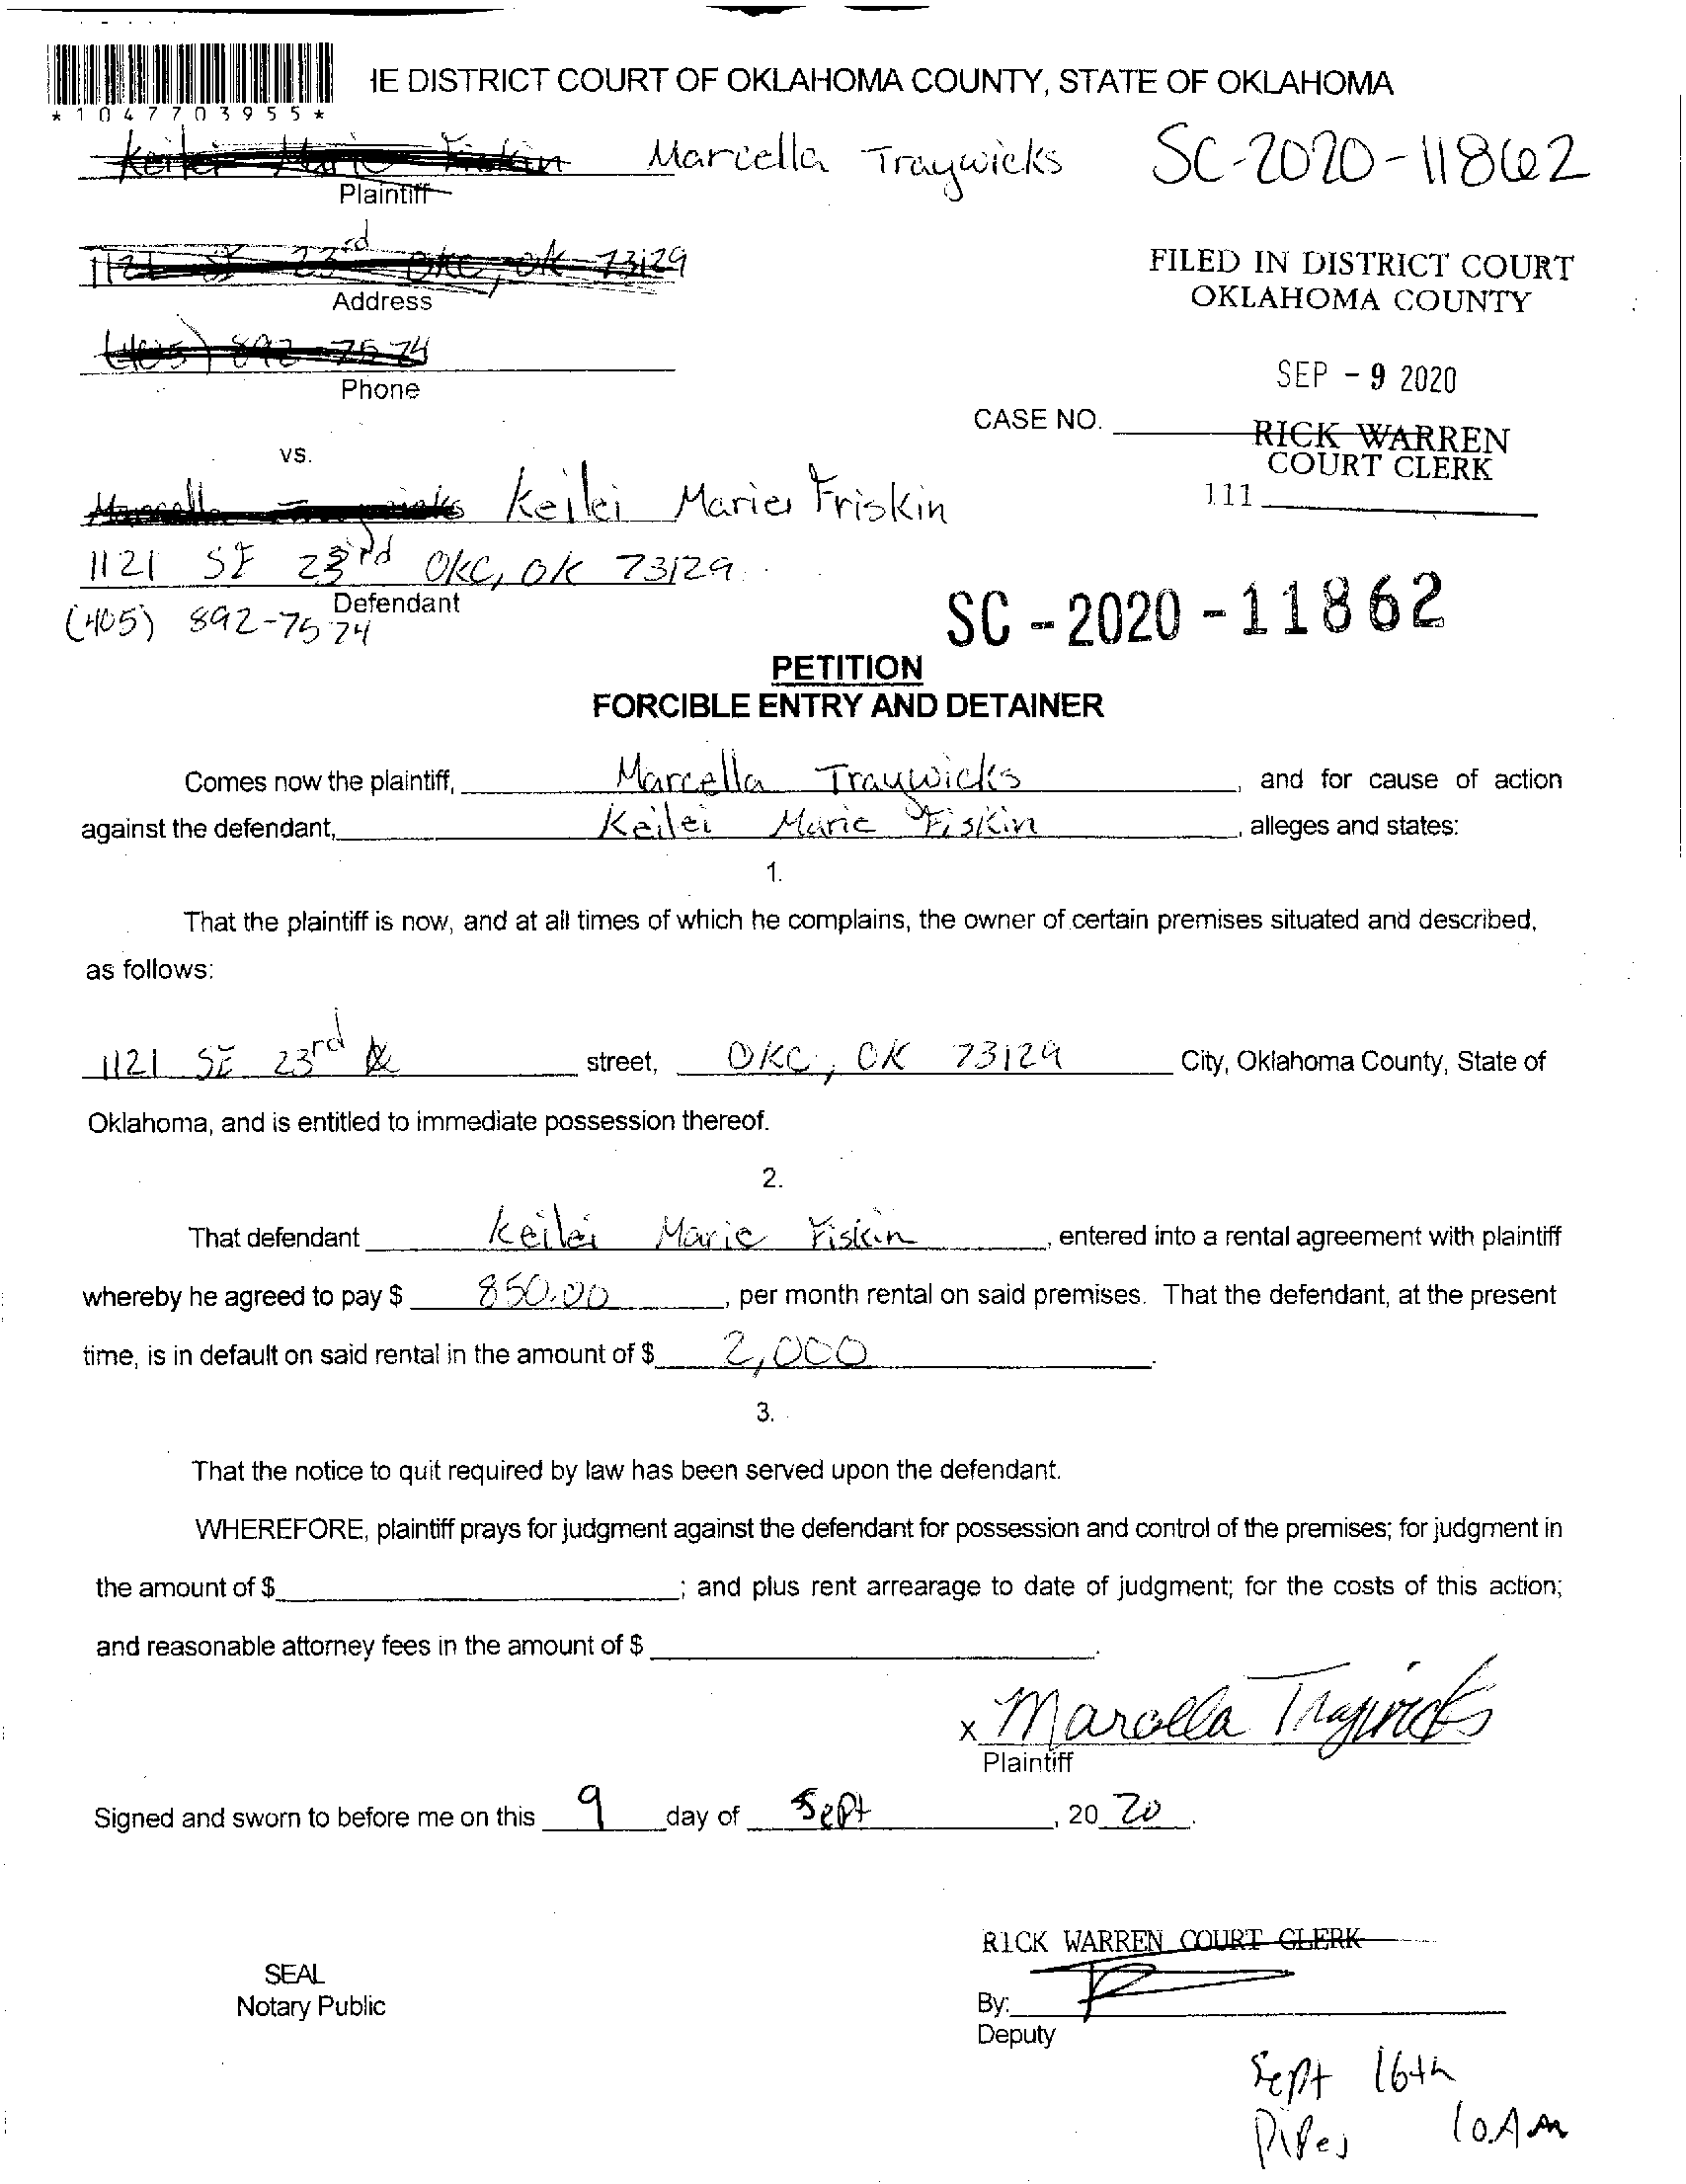 IE DISTRICT COURT OF OKLAHOMA COUNTY, STATE OF OKLAHOMA
*1047703955*
Keilei Marie Friskin Marcella Traywicks SC-2020-11862
Plaintiff
1121 SE 23rd OKC, OK 73129
Address
FILED IN DISTRICT COURT
OKLAHOMA COUNTY
(405) 892-7574
Phone
SEP - 9 2020
CASE NO.
RICK WARREN
COURT CLERK
111
vs.
Marcella Traywicks Keilei Marie Friskin
1121 SE 23rd OKC, OK 73129
Defendant
(405) 892-7574
SC-2020-11862
PETITION
FORCIBLE ENTRY AND DETAINER
Comes now the plaintiff, Marcella Traywicks, and for cause of action
against the defendant, Keilei Marie Fiskin, alleges and states:
1.
That the plaintiff is now, and at all times of which he complains, the owner of certain premises situated and described,
as follows:
1121 SE 23rd street, OKC, OK 73129 City, Oklahoma County, State of
Oklahoma, and is entitled to immediate possession thereof.
2.
That defendant Keilei Marie Fiskin, entered into a rental agreement with plaintiff
whereby he agreed to pay $ 850.00, per month rental on said premises. That the defendant, at the present
time, is in default on said rental in the amount of $ 2,000.
3.
That the notice to quit required by law has been served upon the defendant.
WHEREFORE, plaintiff prays for judgment against the defendant for possession and control of the premises; for judgment in
the amount of $ ; and plus rent arrearage to date of judgment; for the costs of this action;
and reasonable attorney fees in the amount of $ .
x Marcella Traywicks
Plaintiff
Signed and sworn to before me on this 9 day of Sept, 20 20.
RICK WARREN COURT CLERK
SEAL
Notary Public
By:
Deputy
Sept 16th
Pipes 10AM